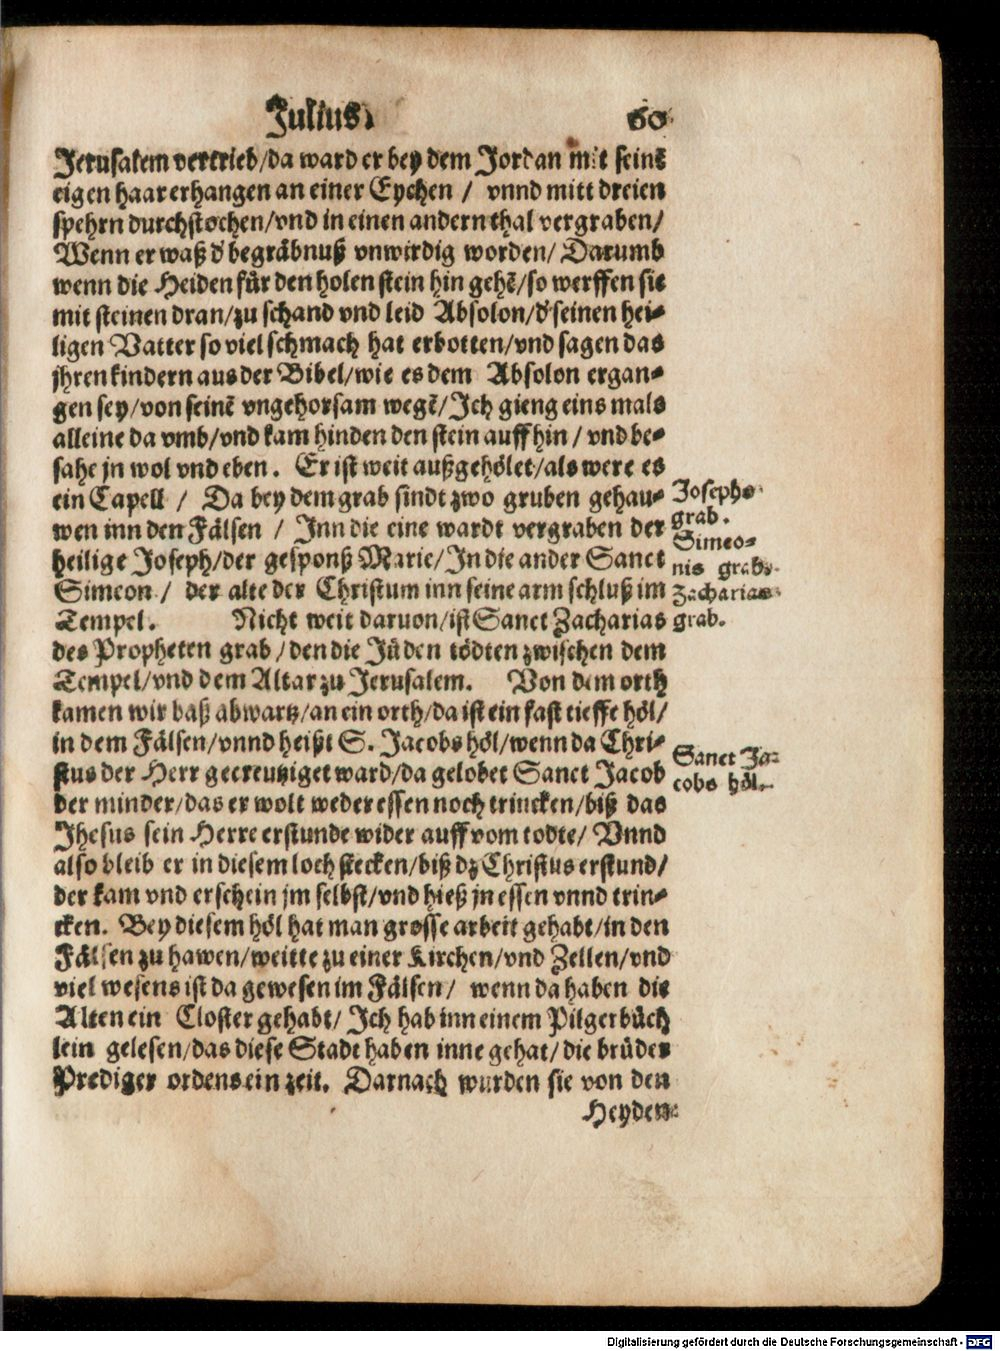 Julius. 60
Jerusalem vertrieb/da ward er bey dem Jordan mit seinē
eigen haar erhangen an einer Eychen / vnnd mitt dreien
spehrn durchstochen/vnd in einen andern thal vergraben/
Wenn er waß d' begräbnuß vnwirdig worden/ Darumb
wenn die Heiden für den holen stein hin gehē/so werffen sie
mit steinen dran/zu schand vnd leid Absolon/d' seinen hei-
ligen Vatter so viel schmach hat erbotten/vnd sagen das
jhren kindern aus der Bibel/wie es dem Absolon ergan-
gen sey/von seinē vngehorsam wegē/Jch gieng eins mals
alleine da vmb/vnd kam hinden den stein auff hin / vnd be-
sahe jn wol vnd eben. Er ist weit außgehölet/als were es
ein Capell / Da bey dem grab sindt zwo gruben gehau-
wen inn den Fälsen / Jnn die eine wardt vergraben der
heilige Joseph/der gesponß Marie/Jn die ander Sanct
Simeon / der alte der Christum inn seine arm schluß im
Tempel. Nicht weit daruon/ist Sanct Zacharias
des Propheten grab/den die Jüden tödten zwischen dem
Tempel/vnd dem Altar zu Jerusalem. Von dem orth
kamen wir baß abwartz/an ein orth/da ist ein fast tieffe höl/
in dem Fälsen/vnnd heißt S. Jacobs höl/wenn da Chri-
stus der Herr gecreutziget ward/da gelobet Sanct Jacob
der minder/das er wolt weder essen noch trincken/biß das
Jhesus sein Herre erstunde wider auff vom todte/ Vnnd
also bleib er in diesem loch stecken/biß dz Christus erstund/
der kam vnd erschein jm selbst/vnd hieß jn essen vnnd trin-
cken. Bey diesem höl hat man grosse arbeit gehabt/in den
Fälsen zu hawen/weitte zu einer Kirchen/vnd Zellen/vnd
viel wesens ist da gewesen im Fälsen/ wenn da haben die
Alten ein Closter gehabt/ Jch hab inn einem Pilgerbüch
lein gelesen/das diese Stadt haben inne gehat/die brüder
Prediger ordens ein zeit. Darnach wurden sie von den
Heyden
Josephs
grab.
Simeo-
nis grab.
Zacharias
grab.
Sanct Ja-
cobs höl.
Digitalisierung gefördert durch die Deutsche Forschungsgemeinschaft - DFG